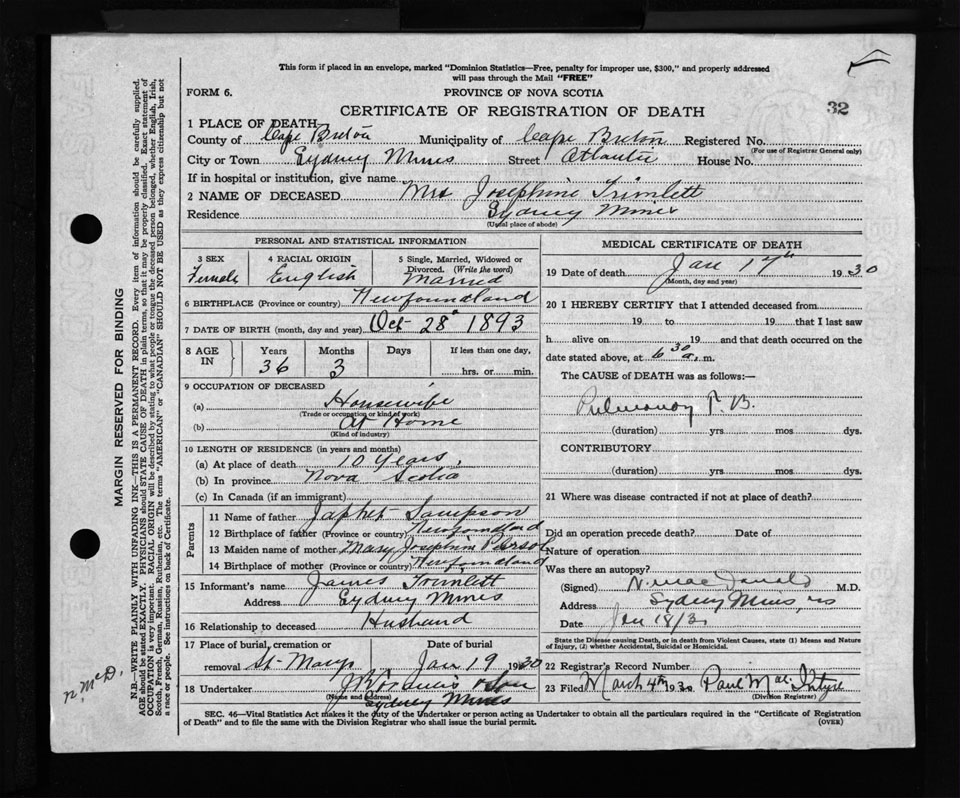 This form if placed in an envelope, marked "Dominion Statistics—Free, penalty for improper use, $300," and properly addressed
will pass through the Mail "FREE"
FORM 6. PROVINCE OF NOVA SCOTIA
CERTIFICATE OF REGISTRATION OF DEATH
32
1 PLACE OF DEATH
County of Cape Breton Municipality of Cape Breton Registered No.
(For use of Registrar General only)
City or Town Sydney Mines Street Atlantic House No.
If in hospital or institution, give name
2 NAME OF DECEASED Mrs Josephine Trimlett
Residence Sydney Mines
(Usual place of abode)
PERSONAL AND STATISTICAL INFORMATION
3 SEX Female
4 RACIAL ORIGIN English
5 Single, Married, Widowed or Divorced. (Write the word) Married
6 BIRTHPLACE (Province or country) Newfoundland
7 DATE OF BIRTH (month, day and year) Oct 28" 1893
8 AGE IN Years 36 Months 3 Days If less than one day, hrs. or min.
9 OCCUPATION OF DECEASED
(a) Housewife
(Trade or occupation or kind of work)
(b) At Home
(Kind of industry)
10 LENGTH OF RESIDENCE (in years and months)
(a) At place of death 10 Years,
(b) In province Nova Scotia
(c) In Canada (if an immigrant)
Parents
11 Name of father Japhet Sampson
12 Birthplace of father (Province or country) Newfoundland
13 Maiden name of mother Mary Josephine
14 Birthplace of mother (Province or country) Newfoundland
15 Informant's name James Trimlett
Address Sydney Mines
16 Relationship to deceased Husband
17 Place of burial, cremation or removal St-Marys Date of burial Jan 19 1930
18 Undertaker Francis & Son
(Name and address)
Sydney Mines
MEDICAL CERTIFICATE OF DEATH
19 Date of death Jan 17th 1930
(Month, day and year)
20 I HEREBY CERTIFY that I attended deceased from
19 to 19 that I last saw
h alive on 19 and that death occurred on the
date stated above, at 6 30 a. m.
The CAUSE of DEATH was as follows:—
Pulmonary T. B.
(duration) yrs mos dys.
CONTRIBUTORY
(duration) yrs mos dys.
21 Where was disease contracted if not at place of death?
Did an operation precede death? Date of
Nature of operation
Was there an autopsy?
(Signed) N. MacDonald M.D.
Address Sydney Mines, NS
Date Jan 18/30
State the Disease causing Death, or in death from Violent Causes, state (1) Means and Nature
of Injury, (2) whether Accidental, Suicidal or Homicidal.
22 Registrar's Record Number
23 Filed March 4th 1930 Paul MacIntyre
(Division Registrar)
SEC. 46—Vital Statistics Act makes it the duty of the Undertaker or person acting as Undertaker to obtain all the particulars required in the "Certificate of Registration
of Death" and to file the same with the Division Registrar who shall issue the burial permit.
(OVER)
MARGIN RESERVED FOR BINDING
N.B.—WRITE PLAINLY WITH UNFADING INK—THIS IS A PERMANENT RECORD. Every item of information should be carefully supplied.
AGE should be stated EXACTLY. PHYSICIANS should STATE CAUSE OF DEATH in plain terms, so that it may be properly classified. Exact statement of
OCCUPATION is very important. RACIAL ORIGIN will be described by stating to what people or tongue the deceased person belonged, whether English, Irish,
Scotch, French, German, Russian, Ruthenian, etc. The terms "AMERICAN" or "CANADIAN" SHOULD NOT BE USED as they express citizenship but not
a race or people. See instructions on back of Certificate.
n McD.